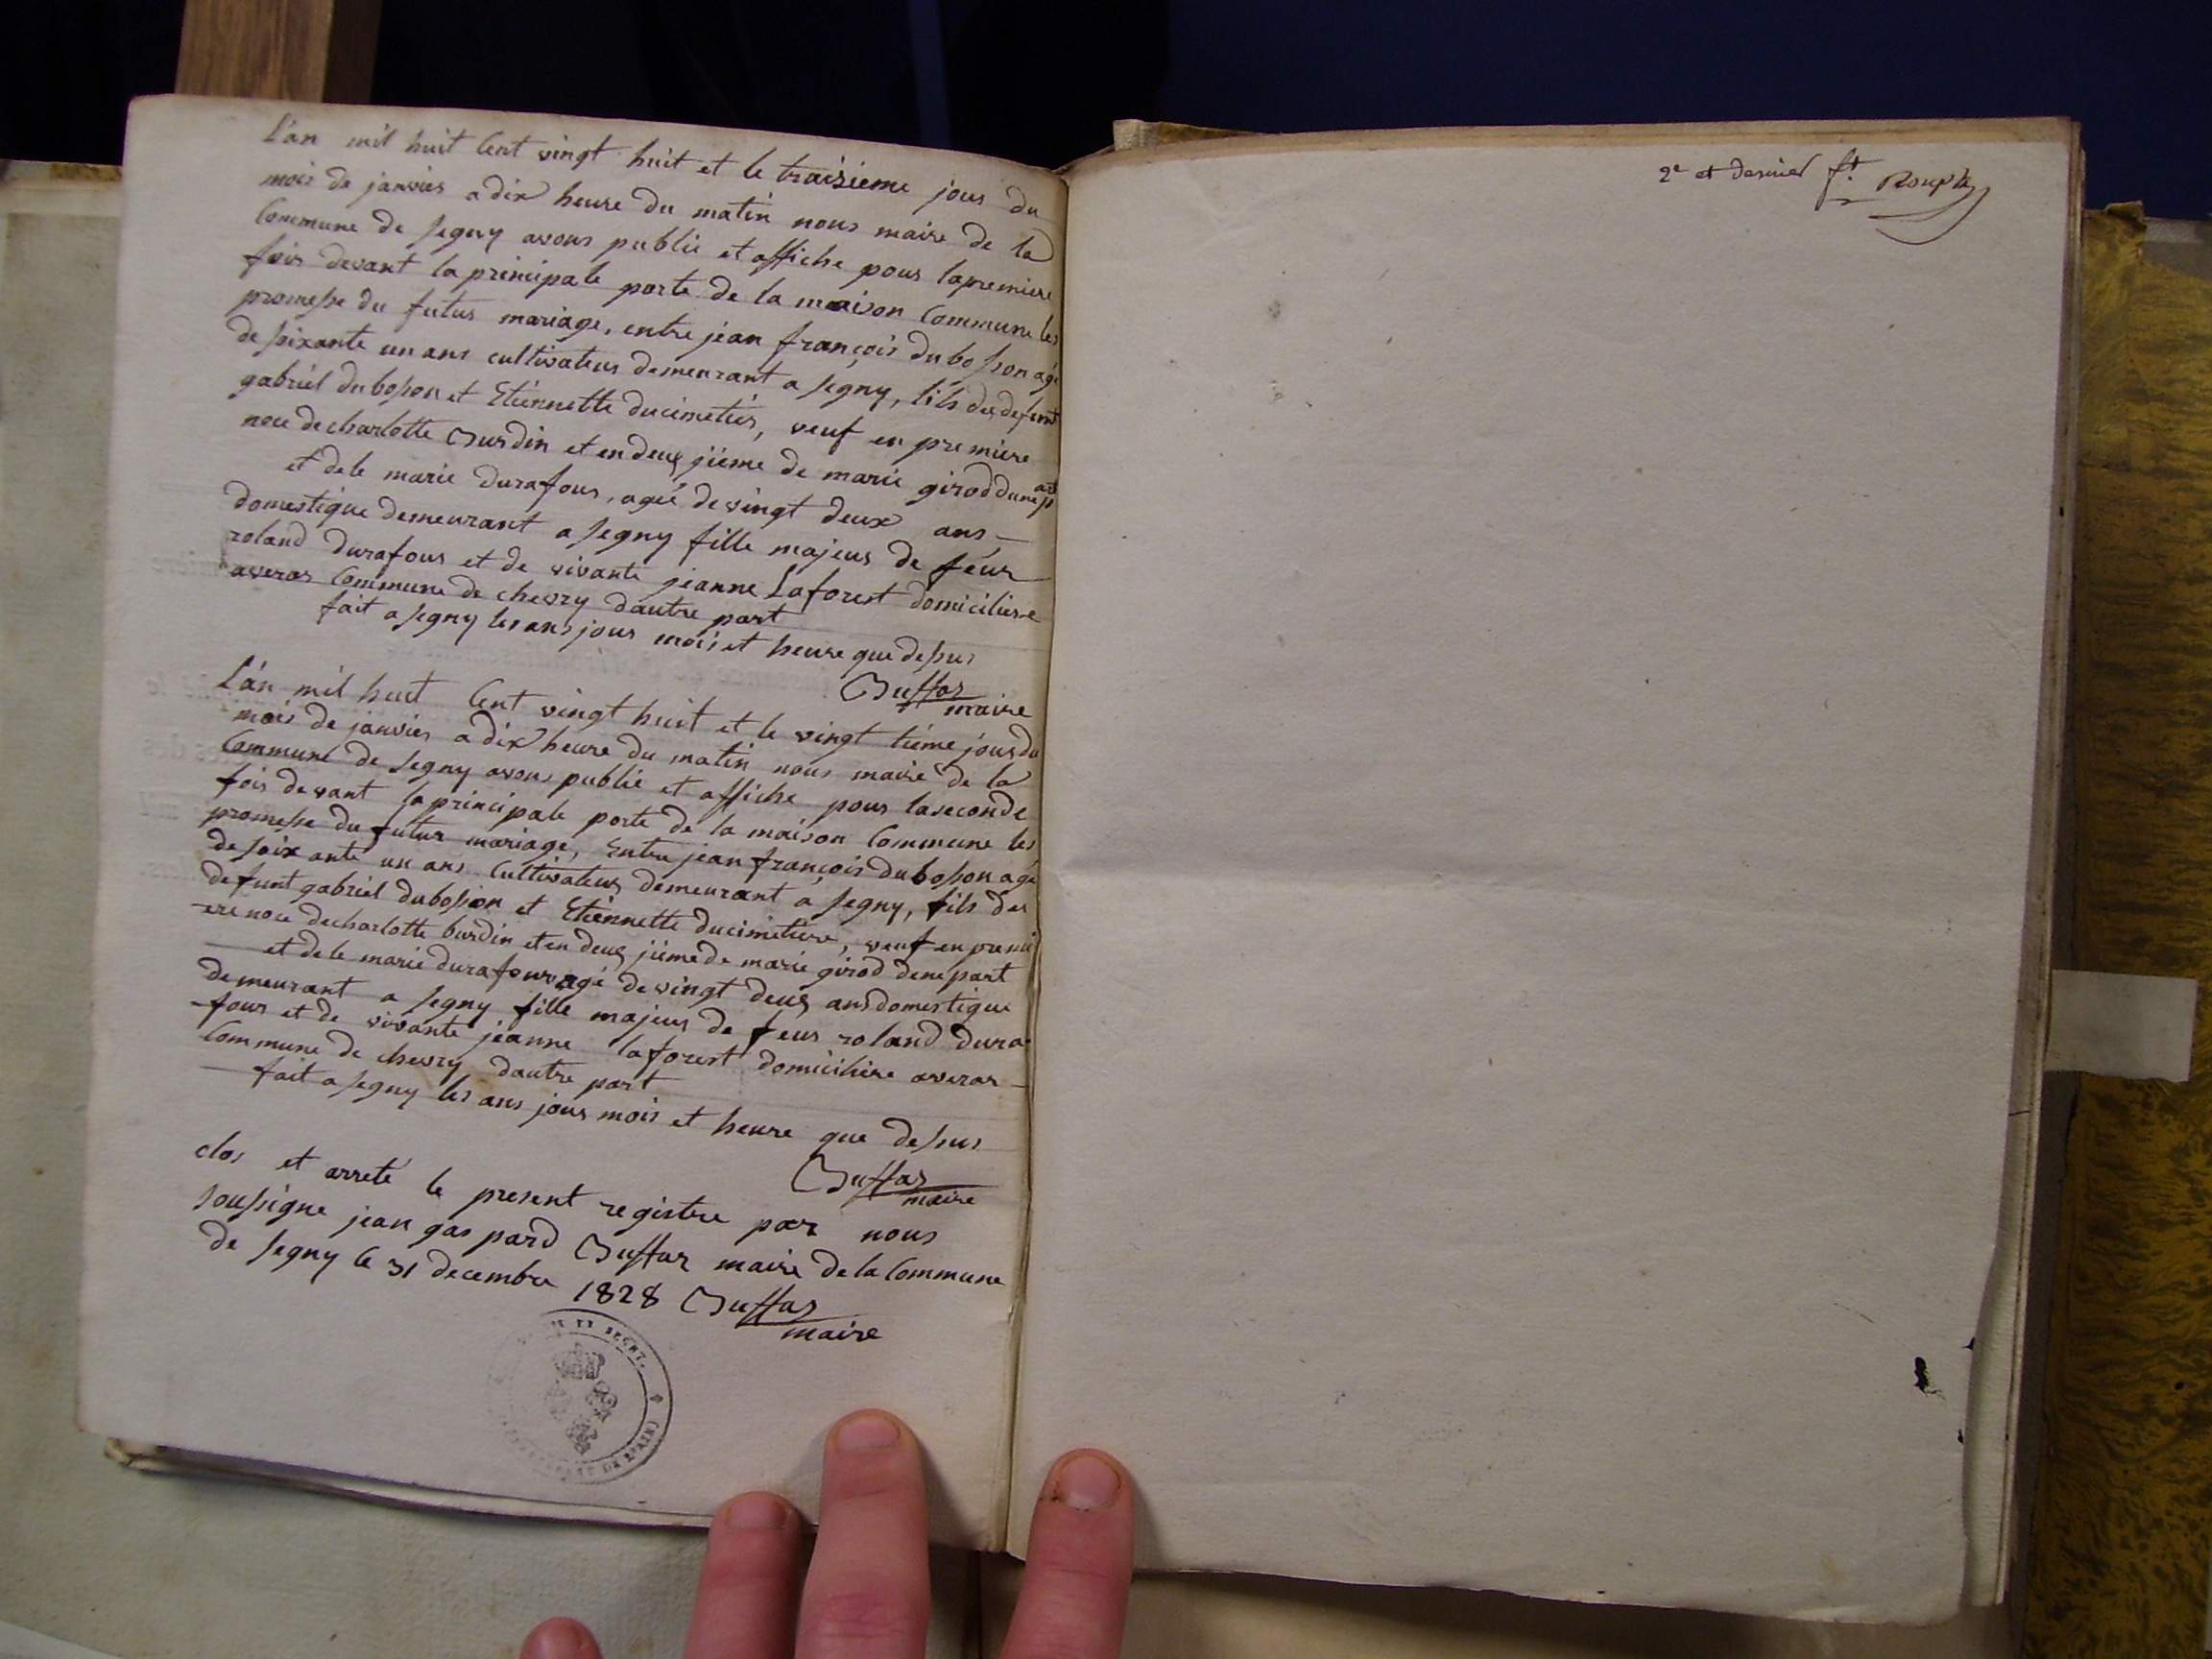 L'an mil huit Cent vingt huit et le traisieme jour du
mois de janvier a dix heure du matin nous maire de la
Commune de Segny avons publié et affiche pour la premiere
fois devant la principale porte de la maison Commune les
promesse du futur mariage, entre jean françois dubosson agé
de soixante un ans cultivateur demeurant a Segny, fils des defunt
gabriel dubosson et Etiennette ducimetier, veuf en premiere
noce de charlotte Burdin et en deuxjième de marie girod dune part
et de le marie Durafour, agée de vingt deux ans
domestique demeurant a Segny fille majeur de feur
roland Durafour et de vivante jeanne Laforest domiciliere
averas Commune de chevry dautre part
fait a Segny les ans jour mois et heure que dessus
Buffar
maire
L'an mil huit Cent vingt huit et le vingt tiéme jour du
mois de janvier a dix heure du matin nous maire de la
Commune de Segny avons publié et affiche pour la seconde
fois devant la principale porte de la maison Commune les
promesse du futur mariage, Entre jean françois dubosson agé
de soixante un ans Cultivateur demeurant a Segny, fils des
defunt gabriel dubosson et Etiennette ducimetiere, veuf en premi
ere noce de charlotte burdin et en deuxjieme de marie girod dune part
et de le marie durafour agé de vingt deux ans domestique
demeurant a Segny fille majeur de feur roland dura-
four et de vivante jeanne laforest domiciliere averas
Commune de chevry dautre part
fait a Segny les ans jour mois et heure que dessus
Buffar
maire
clos et arreté le present registre par nous
soussigne jean gaspard Buffar maire de la Commune
de Segny le 31 decembre 1828 Buffar
maire
2e et dernier ft.